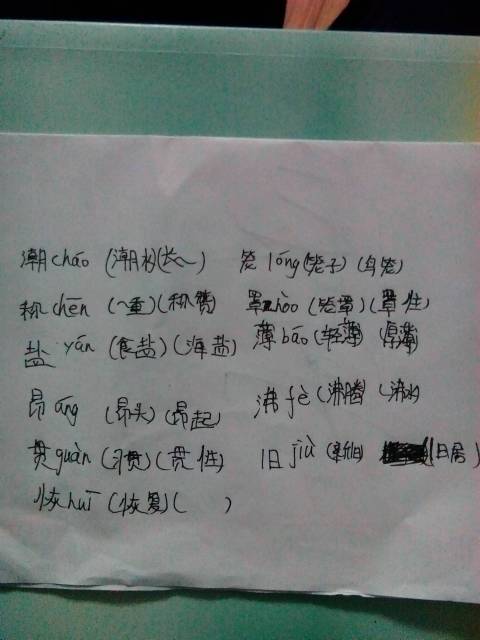 潮cháo (潮水)(长～) 笼lóng(笼子)(鸟笼)
称chēn (～重)(称赞) 罩zhào(笼罩)(罩住)
盐yán (食盐)(海盐) 薄báo(轻薄)(厚薄)
昂áng (昂头)(昂起) 沸fè(沸腾)(沸水)
贯guàn (习贯)(贯性) 旧jiù(新旧) (旧居)
恢huī(恢复)( )